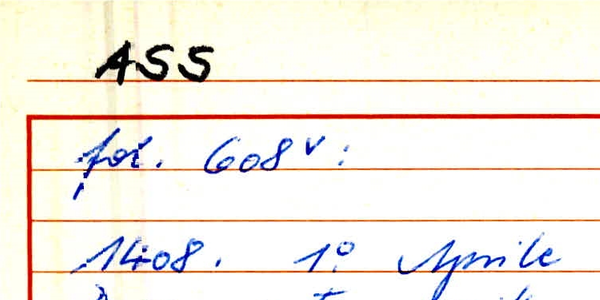 ASS
fol. 608v:
1408. 1º Aprile